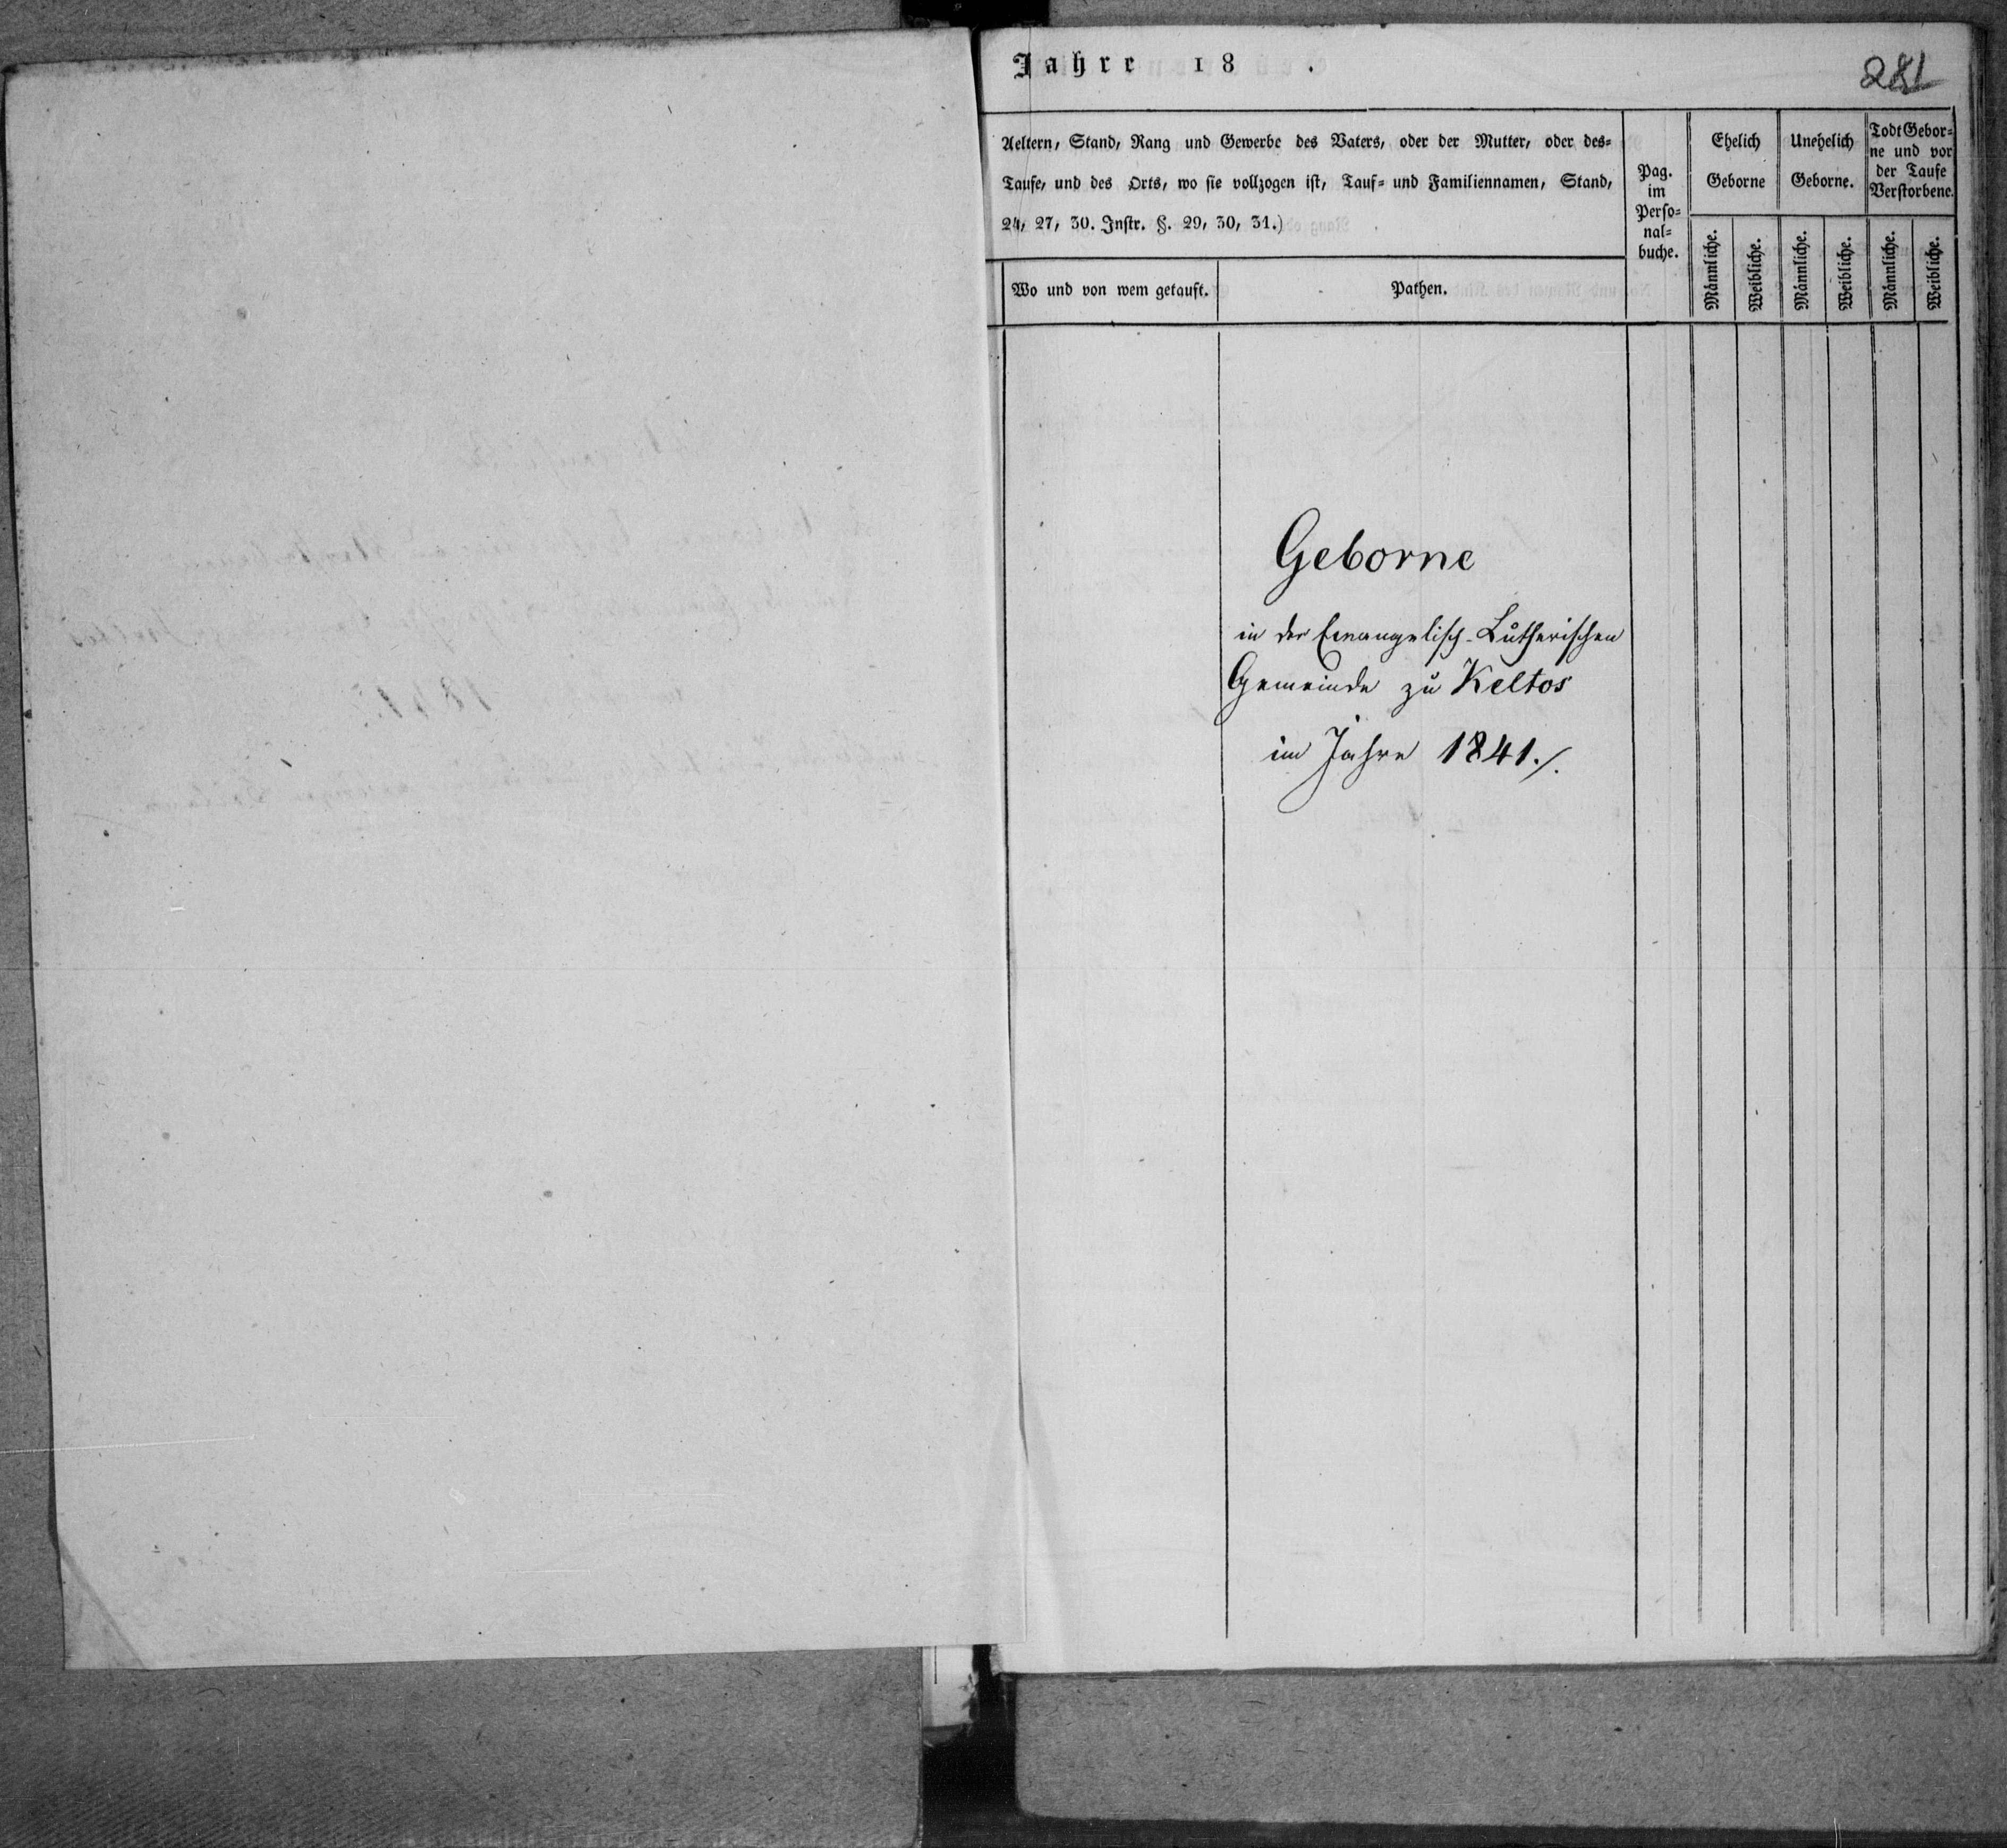 Jahre 18 .
281
Aeltern, Stand, Rang und Gewerbe des Vaters, oder der Mutter, oder des-
Taufe, und des Orts, wo sie vollzogen ist, Tauf- und Familiennamen, Stand,
24, 27, 30. Instr. §. 29, 30, 31.)
Wo und von wem getauft.
Pathen.
Pag.
im
Perso-
nal-
buche.
Ehelich
Geborne
Unehelich
Geborne.
Todt Gebor-
ne und vor
der Taufe
Verstorbene.
Männliche.
Weibliche.
Männliche.
Weibliche.
Männliche.
Weibliche.
Geborne
in der Evangelisch-Lutherischen
Gemeinde zu Keltos
im Jahre 1841./.